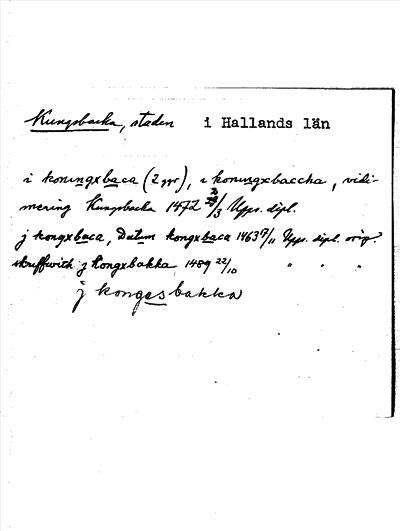 Kungsbacka, staden i Hallands län
i koningxbaca (2 ggr), i koningxbaccha, vidi-
mering Kungsbacka 1472 /3 Upps. dipl.
j kongxbaca, Datum kongxbaca 1463 17/11 Upps. dipl. orig.
skriffwith j Kongxbakka 1489 22/10 " " "
j kongesbakka